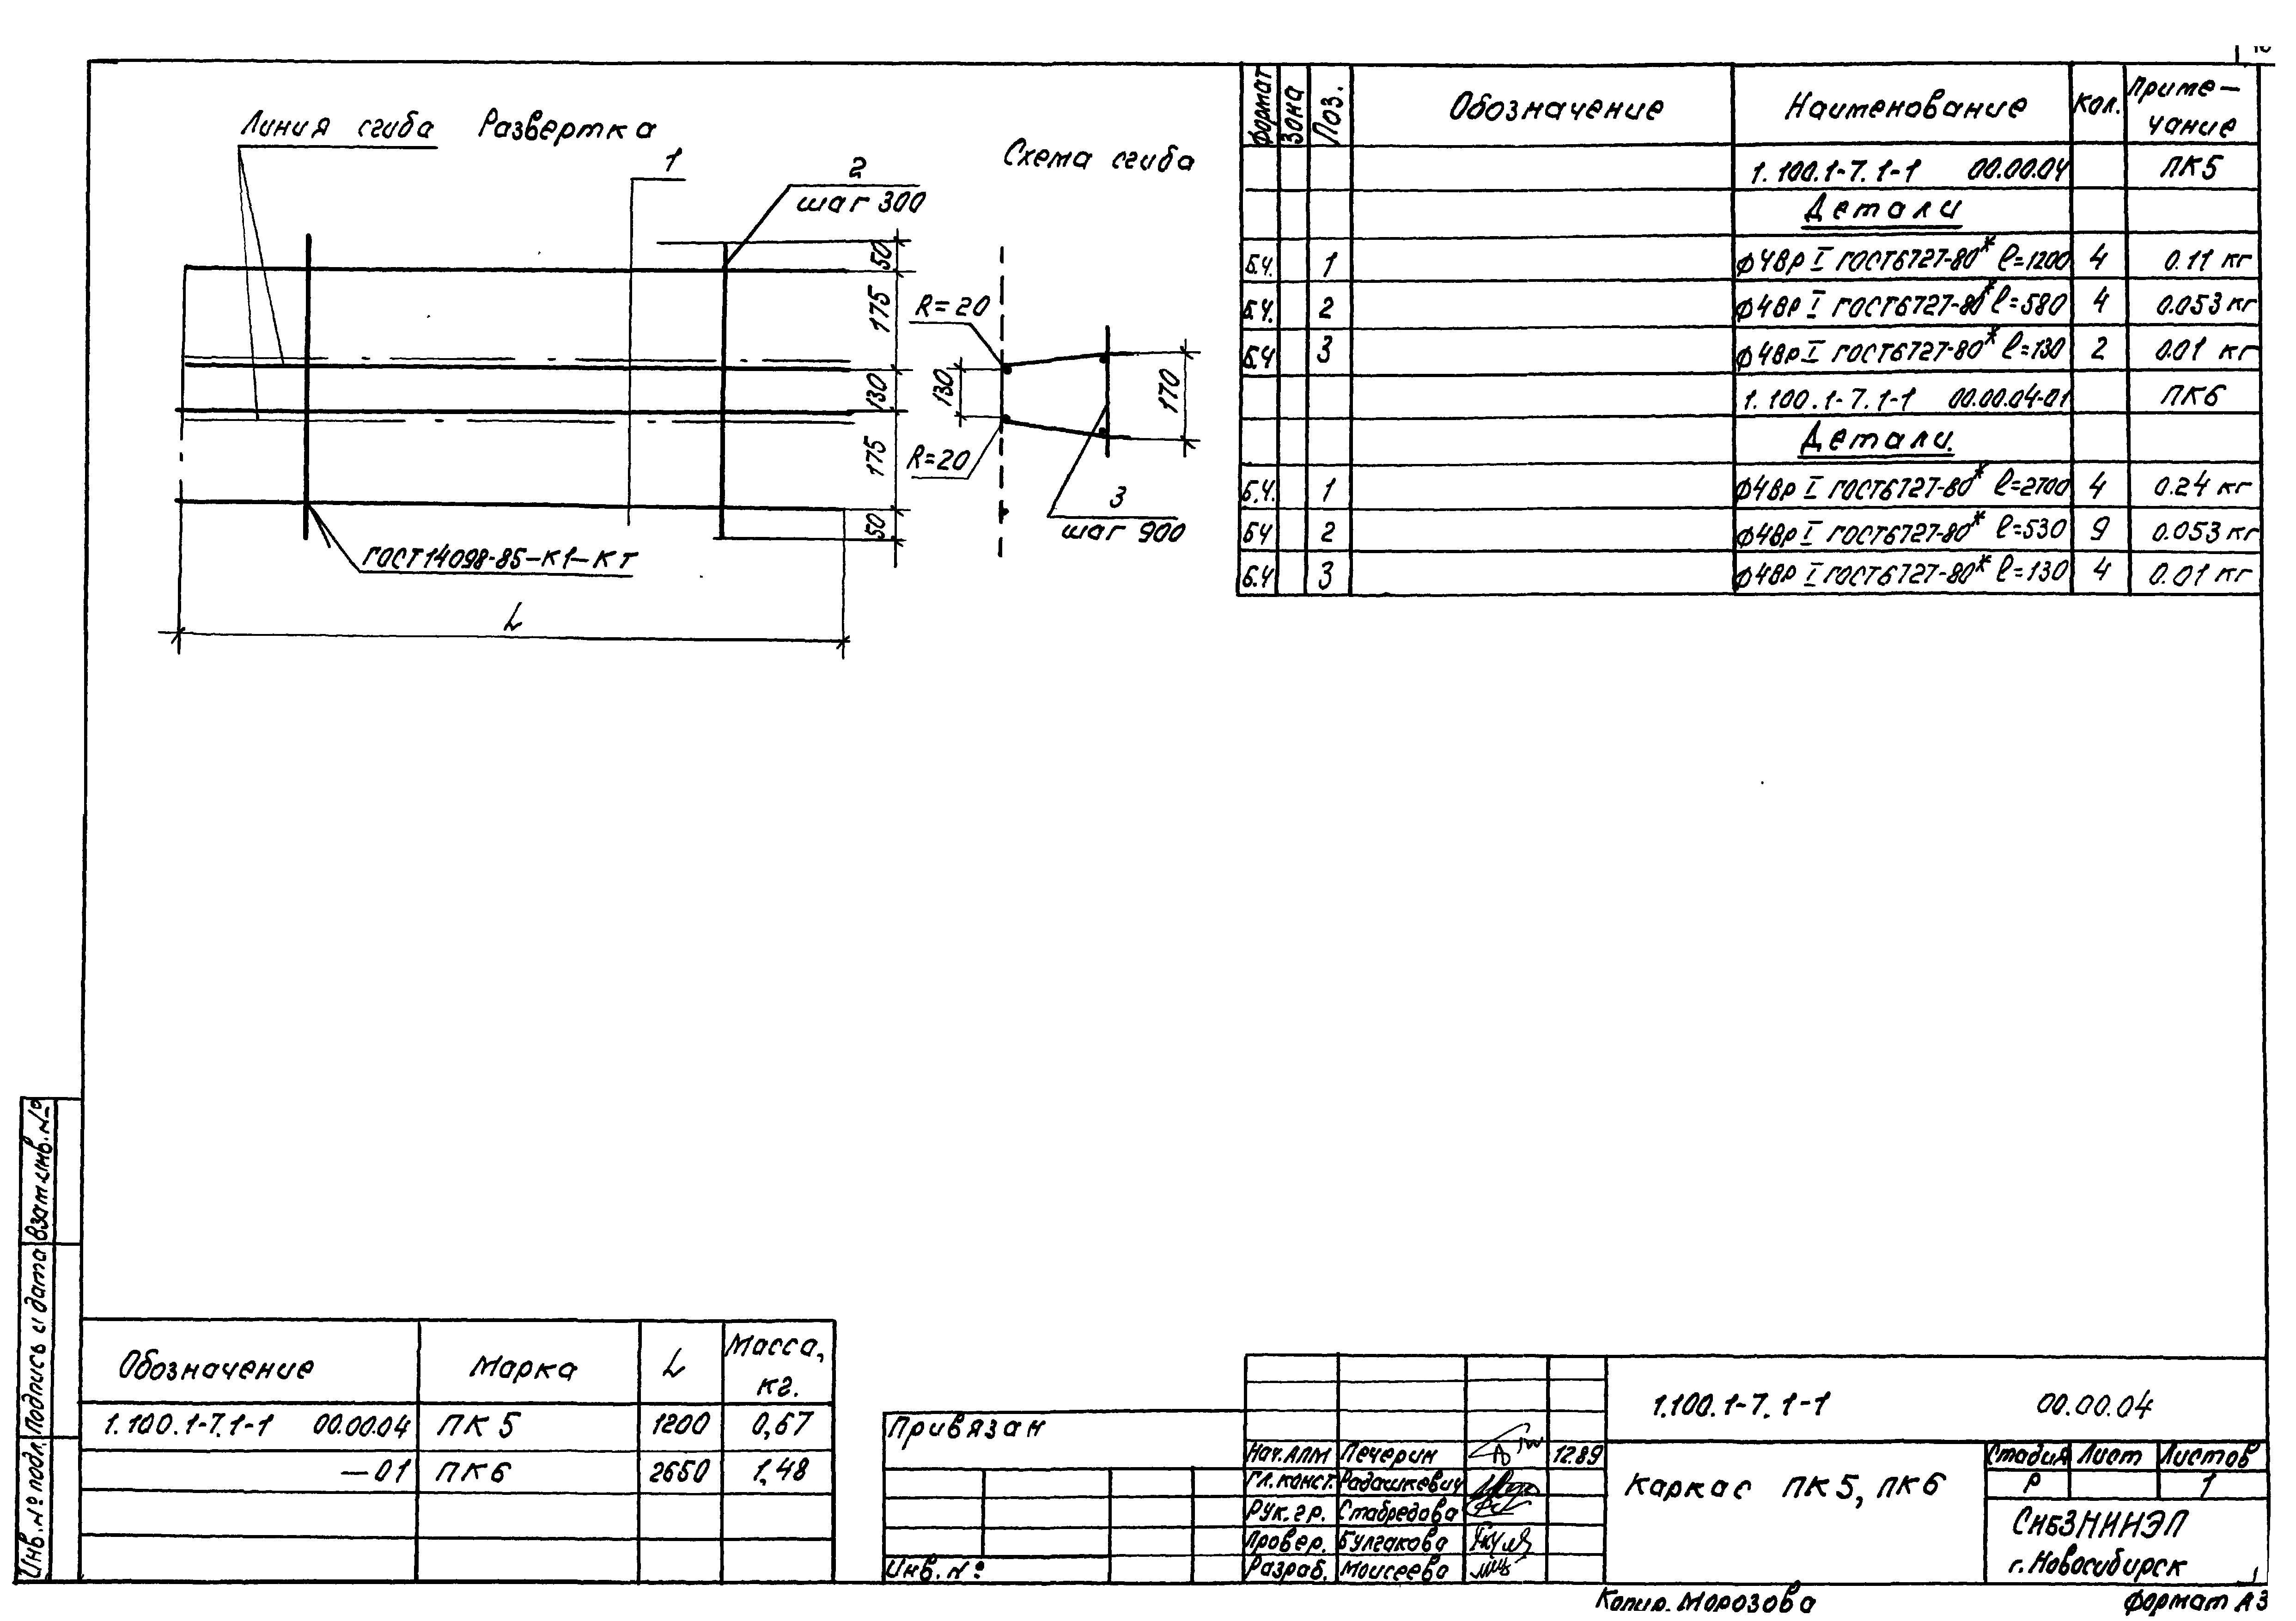 Линия сгиба Развертка
1
2
шаг 300
50
175
130
175
50
ГОСТ14098-85-К1-КТ
L
Схема сгиба
R=20
130
R=20
170
3
шаг 900
Формат Зона Поз. Обозначение Наименование Кол. Приме-
чание
1.100.1-7.1-1 00.00.04 ПК5
Детали
Б.Ч. 1 ф4Вр I ГОСТ6727-80* ℓ=1200 4 0.11 кг
Б.Ч. 2 ф4Вр I ГОСТ6727-80* ℓ=580 4 0.053 кг
Б.Ч 3 ф4Вр I ГОСТ6727-80* ℓ=130 2 0.01 кг
1.100.1-7.1-1 00.00.04-01 ПК6
Детали.
Б.Ч. 1 ф4Вр I ГОСТ6727-80* ℓ=2700 4 0.24 кг
БЧ 2 ф4Вр I ГОСТ6727-80* ℓ=530 9 0.053 кг
Б.Ч 3 ф4Вр I ГОСТ6727-80* ℓ=130 4 0.01 кг
Взам.инв.№
Подпись и дата
Инв.№ подл.
Обозначение Марка L Масса,
кг.
1.100.1-7.1-1 00.00.04 ПК 5 1200 0,67
—01 ПК6 2650 1,48
Привязан
Инв.№
Нач.АПМ Печерин 12.89
Гл.конст. Радашкевич
Рук.гр. Стабредова
Провер. Булгакова
Разраб. Моисеева
1.100.1-7.1-1 00.00.04
Каркас ПК5, ПК6
Стадия Лист Листов
Р 1
СибЗНИИЭП
г.Новосибирск
Копир. Морозова Формат А3